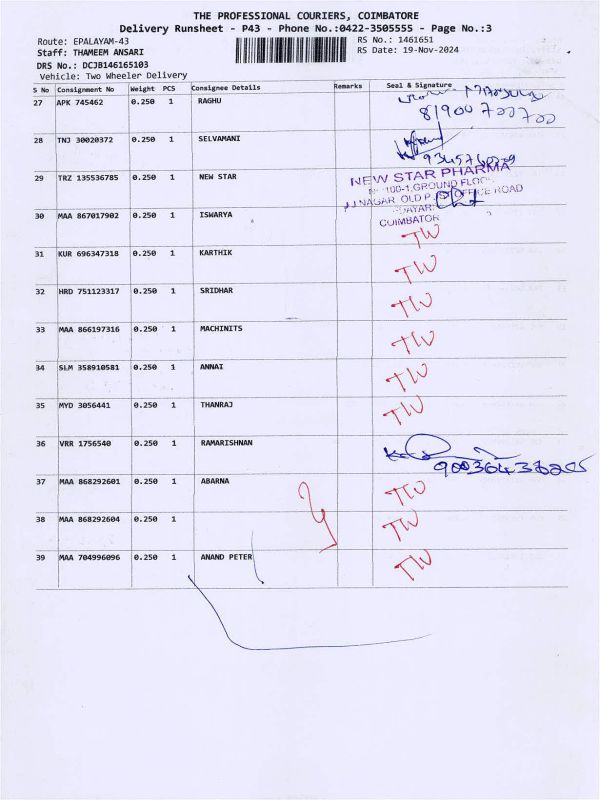 THE PROFESSIONAL COURIERS, COIMBATORE
Delivery Runsheet - P43 - Phone No.:0422-3505555 - Page No.:3
Route: EPALAYAM-43 RS No.: 1461651
Staff: THAMEEM ANSARI RS Date: 19-Nov-2024
DRS No.: DCJB146165103
Vehicle: Two Wheeler Delivery
S No Consignment No Weight PCS Consignee Details Remarks Seal & Signature
27 APK 745462 0.250 1 RAGHU
81900 700700
28 TNJ 30020372 0.250 1 SELVAMANI
29 TRZ 135536785 0.250 1 NEW STAR
NEW STAR PHARMA
100-1,GROUND FLOOR
OLD POST OFFICE ROAD
COIMBATOR
30 MAA 867017902 0.250 1 ISWARYA TW
31 KUR 696347318 0.250 1 KARTHIK TW
32 HRD 751123317 0.250 1 SRIDHAR TW
33 MAA 866197316 0.250 1 MACHINITS TW
34 SLM 358910581 0.250 1 ANNAI TW
35 MYD 3056441 0.250 1 THANRAJ TW
36 VRR 1756540 0.250 1 RAMARISHNAN
37 MAA 868292601 0.250 1 ABARNA TW
38 MAA 868292604 0.250 1 TW
39 MAA 704996096 0.250 1 ANAND PETER TW